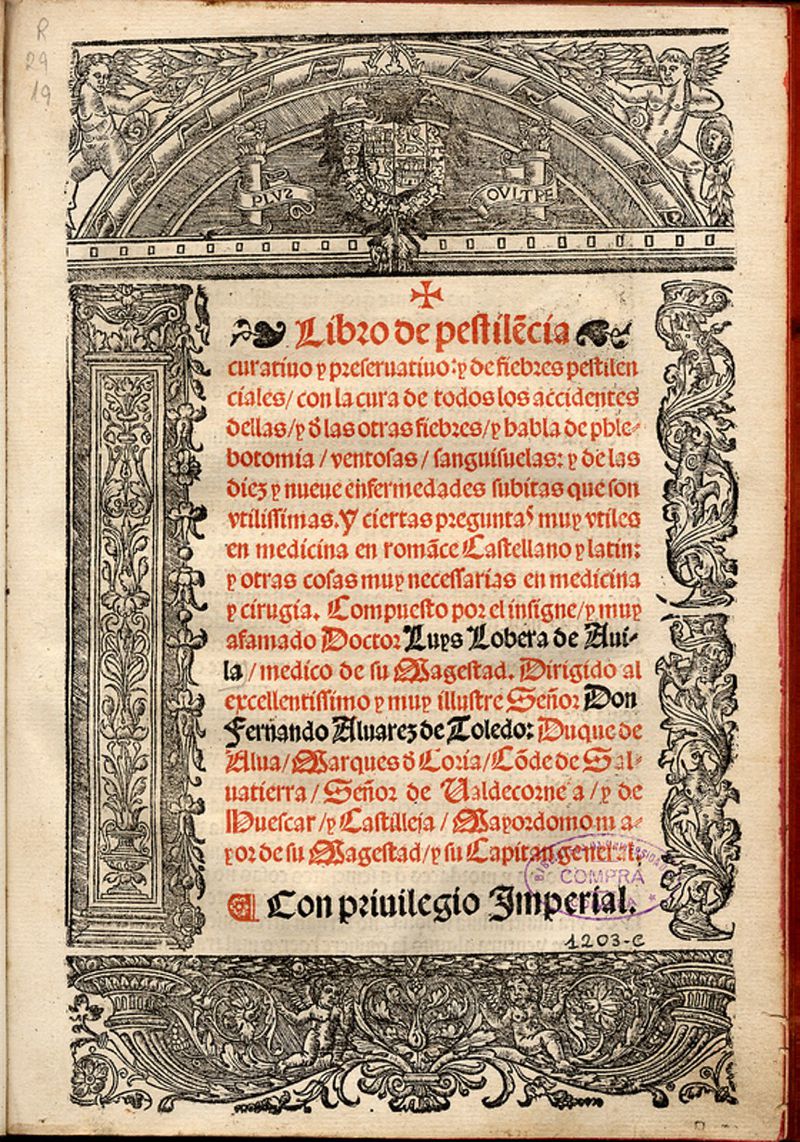 R
29
19
PLVS
OVLTRE
✠
Libro de pestilẽcia
curatiuo y preseruatiuo: y de fiebres pestilen
ciales / con la cura de todos los accidentes
dellas / y đ las otras fiebres / y habla de phle-
botomia / ventosas / sanguisuelas: y de las
diez y nueue enfermedades subitas que son
vtilissimas. Y ciertas preguntas muy vtiles
en medicina en romãce Castellano y latin:
y otras cosas muy necessarias en medicina
y cirugia. Compuesto por el insigne / y muy
afamado Doctor Luys Lobera de Aui-
la / medico de su Magestad. Dirigido al
excellentissimo y muy illustre Señor Don
Fernando Aluarez de Toledo: Duque de
Alua / Marques đ Coria / Cõde de Sal-
uatierra / Señor de Ualdecorne a / y de
Huescar / y Castilleja / Mayordomo ma-
yor de su Magestad / y su Capitan general.
¶ Con priuilegio Imperial.
COMPRA
1203-C